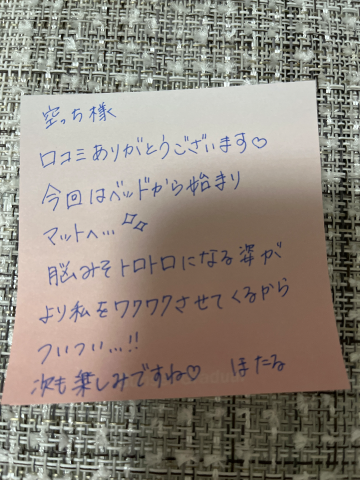 空っち様
口コミありがとうございます♡
今回はベッドから始まり
マットへ…
脳みそトロトロになる姿が
より私をワクワクさせてくるから
ついつい…!!
次も楽しみですね♡ ほたる